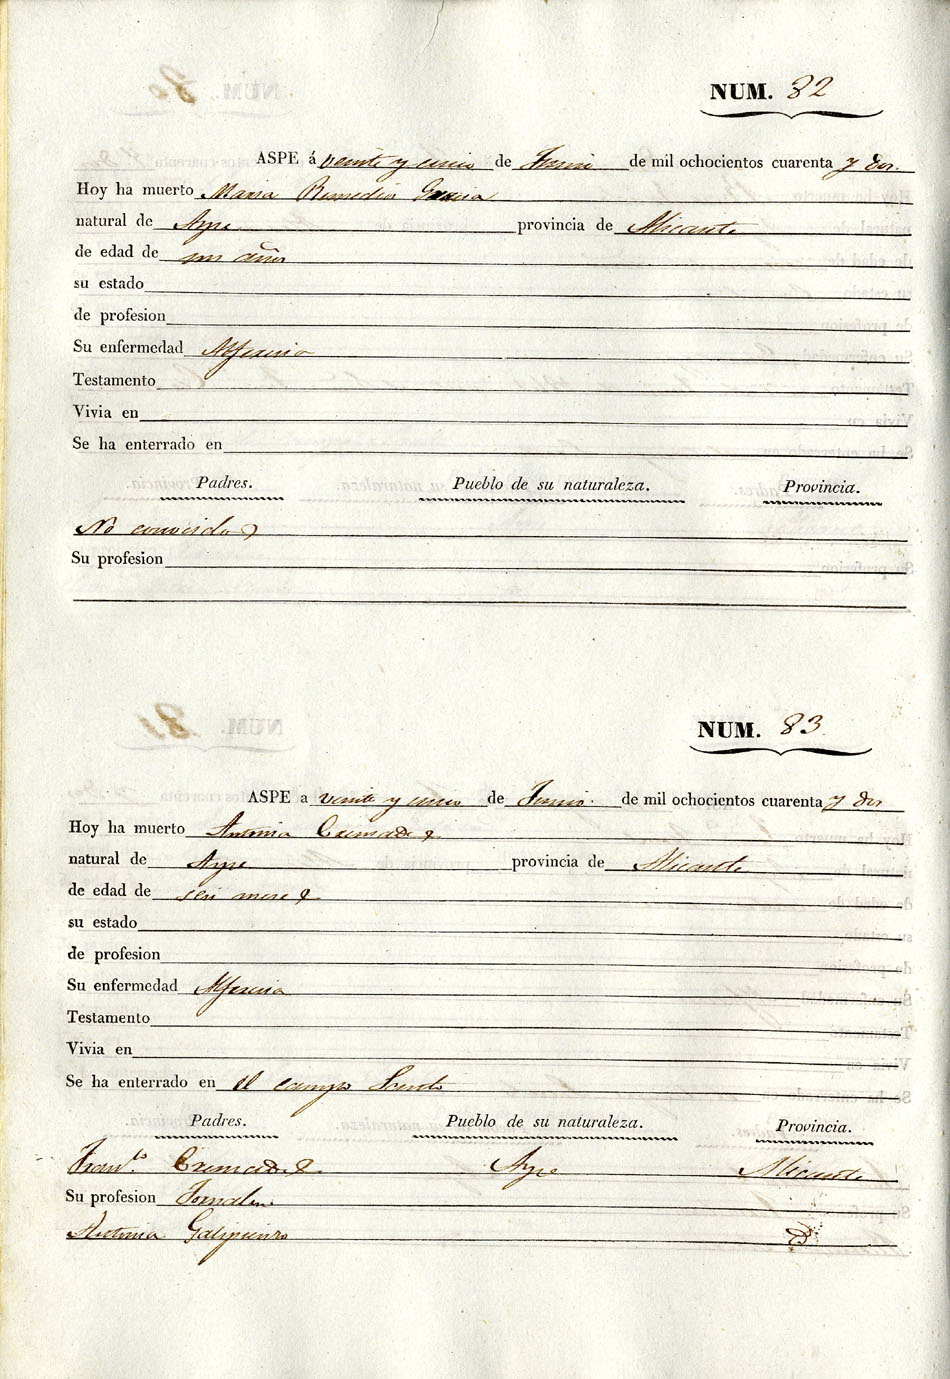 NUM. 82
ASPE á veinte y cinco de Junio de mil ochocientos cuarenta y dos.
Hoy ha muerto Maria Remedios Gracia
natural de Aspe provincia de Alicante
de edad de un años
su estado
de profesion
Su enfermedad Alferecia
Testamento
Vivia en
Se ha enterrado en
Padres. Pueblo de su naturaleza. Provincia.
No conocidos
Su profesion
NUM. 83
ASPE a veinte y cinco de Junio. de mil ochocientos cuarenta y dos
Hoy ha muerto Antonia Cremades
natural de Aspe provincia de Alicante
de edad de seis meses
su estado
de profesion
Su enfermedad Alferecia
Testamento
Vivia en
Se ha enterrado en el campo Santo
Padres. Pueblo de su naturaleza. Provincia.
Franco. Cremades Aspe Alicante
Su profesion Jornalero.
Antonia Galipienso